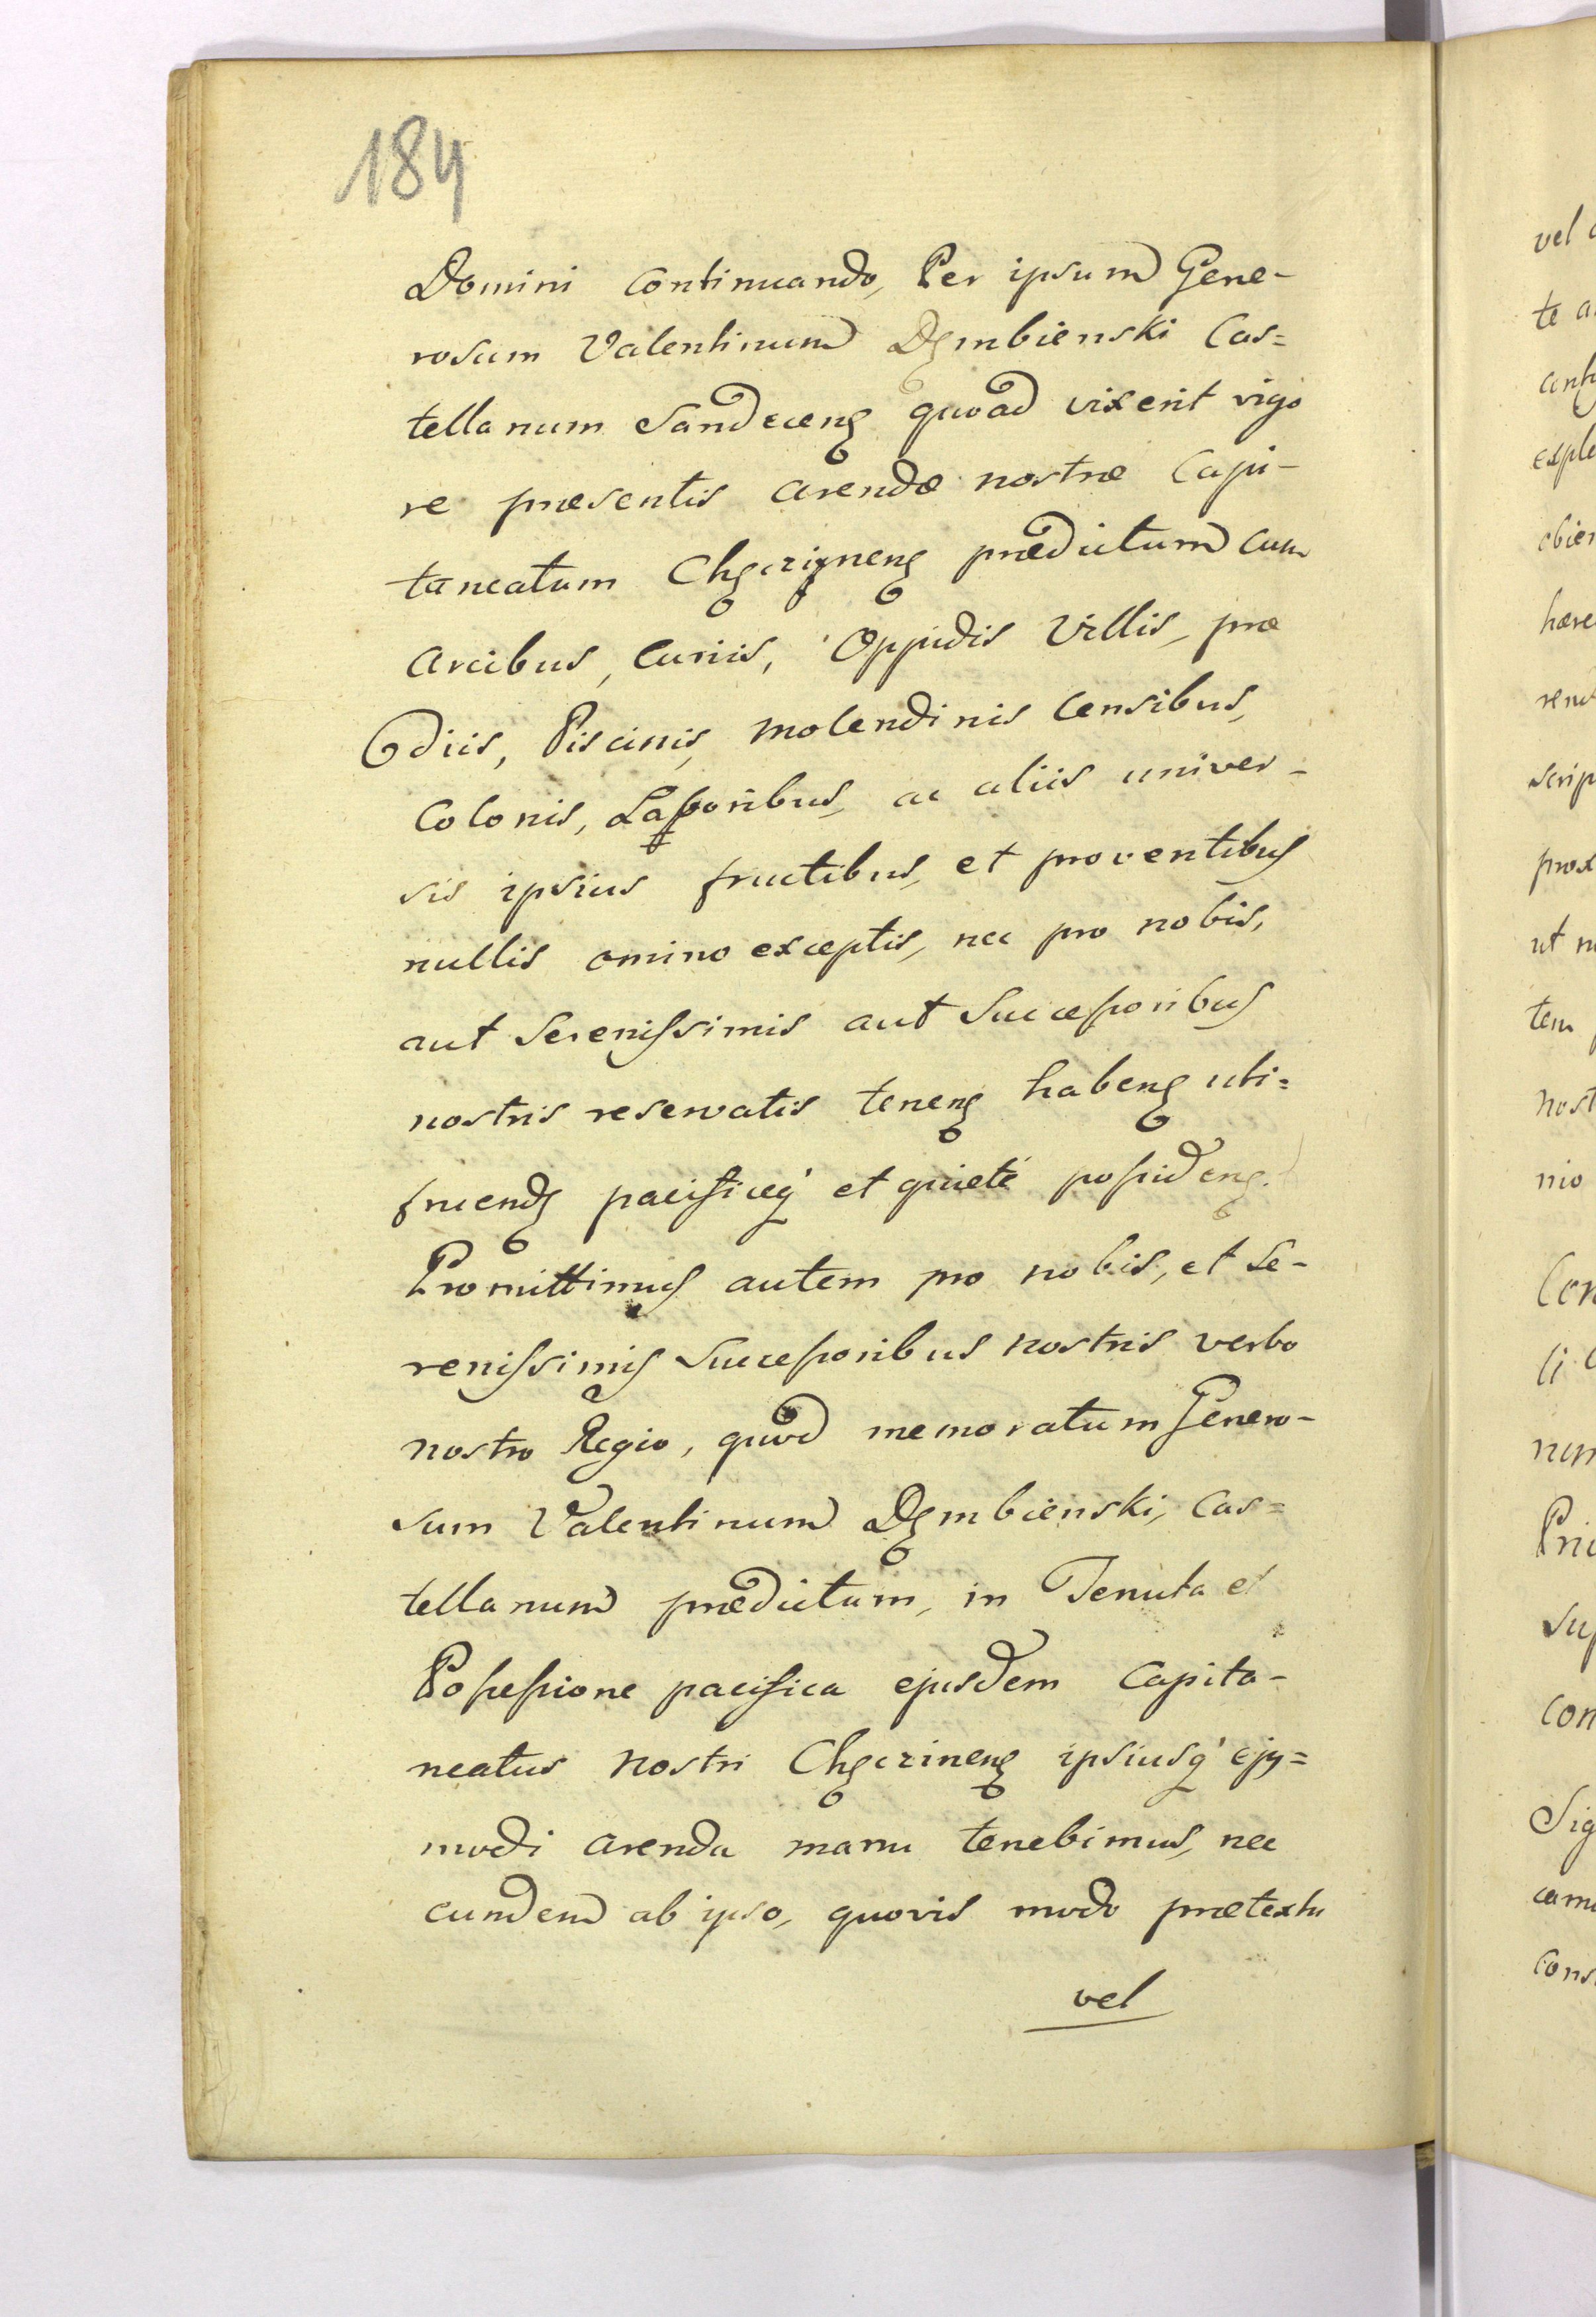 184
Domini continuando, Per ipsum Gene-
rosum Valentinum Dęmbienski Cas=
tellanum Sandecenς quoad vixerit vigo
re præsentis arendæ nostræ Capi-
taneatum Chęcrzynenς prædictum cum
Arcibus, Curiis, Oppidis Villis, præ
diis, Piscinis, molendinis censibus,
Colonis, Laboribus, ac aliis univer-
sis ipsius fructibus, et proventibus
nullis omino exceptis, nec pro nobis,
aut Serenissimis aut Successoribus
nostris reservatis tenenς habenς uti=
fruendς pacificeq' et quietè possidenς.
Promittimus autem pro nobis, et Se-
renissimis Successoribus nostris verbo
nostro Regio, quod memoratum Genero-
sum Valentinum Dęmbienski, Cas=
tellanum prædictum, in Tenuta et
Possessione pacifica ejusdem Capita-
neatus nostri Chęcrinenς ipsiusq' ejus=
modi arenda manu tenebimus, nec
eundem ab ipso, quovis modo prætextu
vel